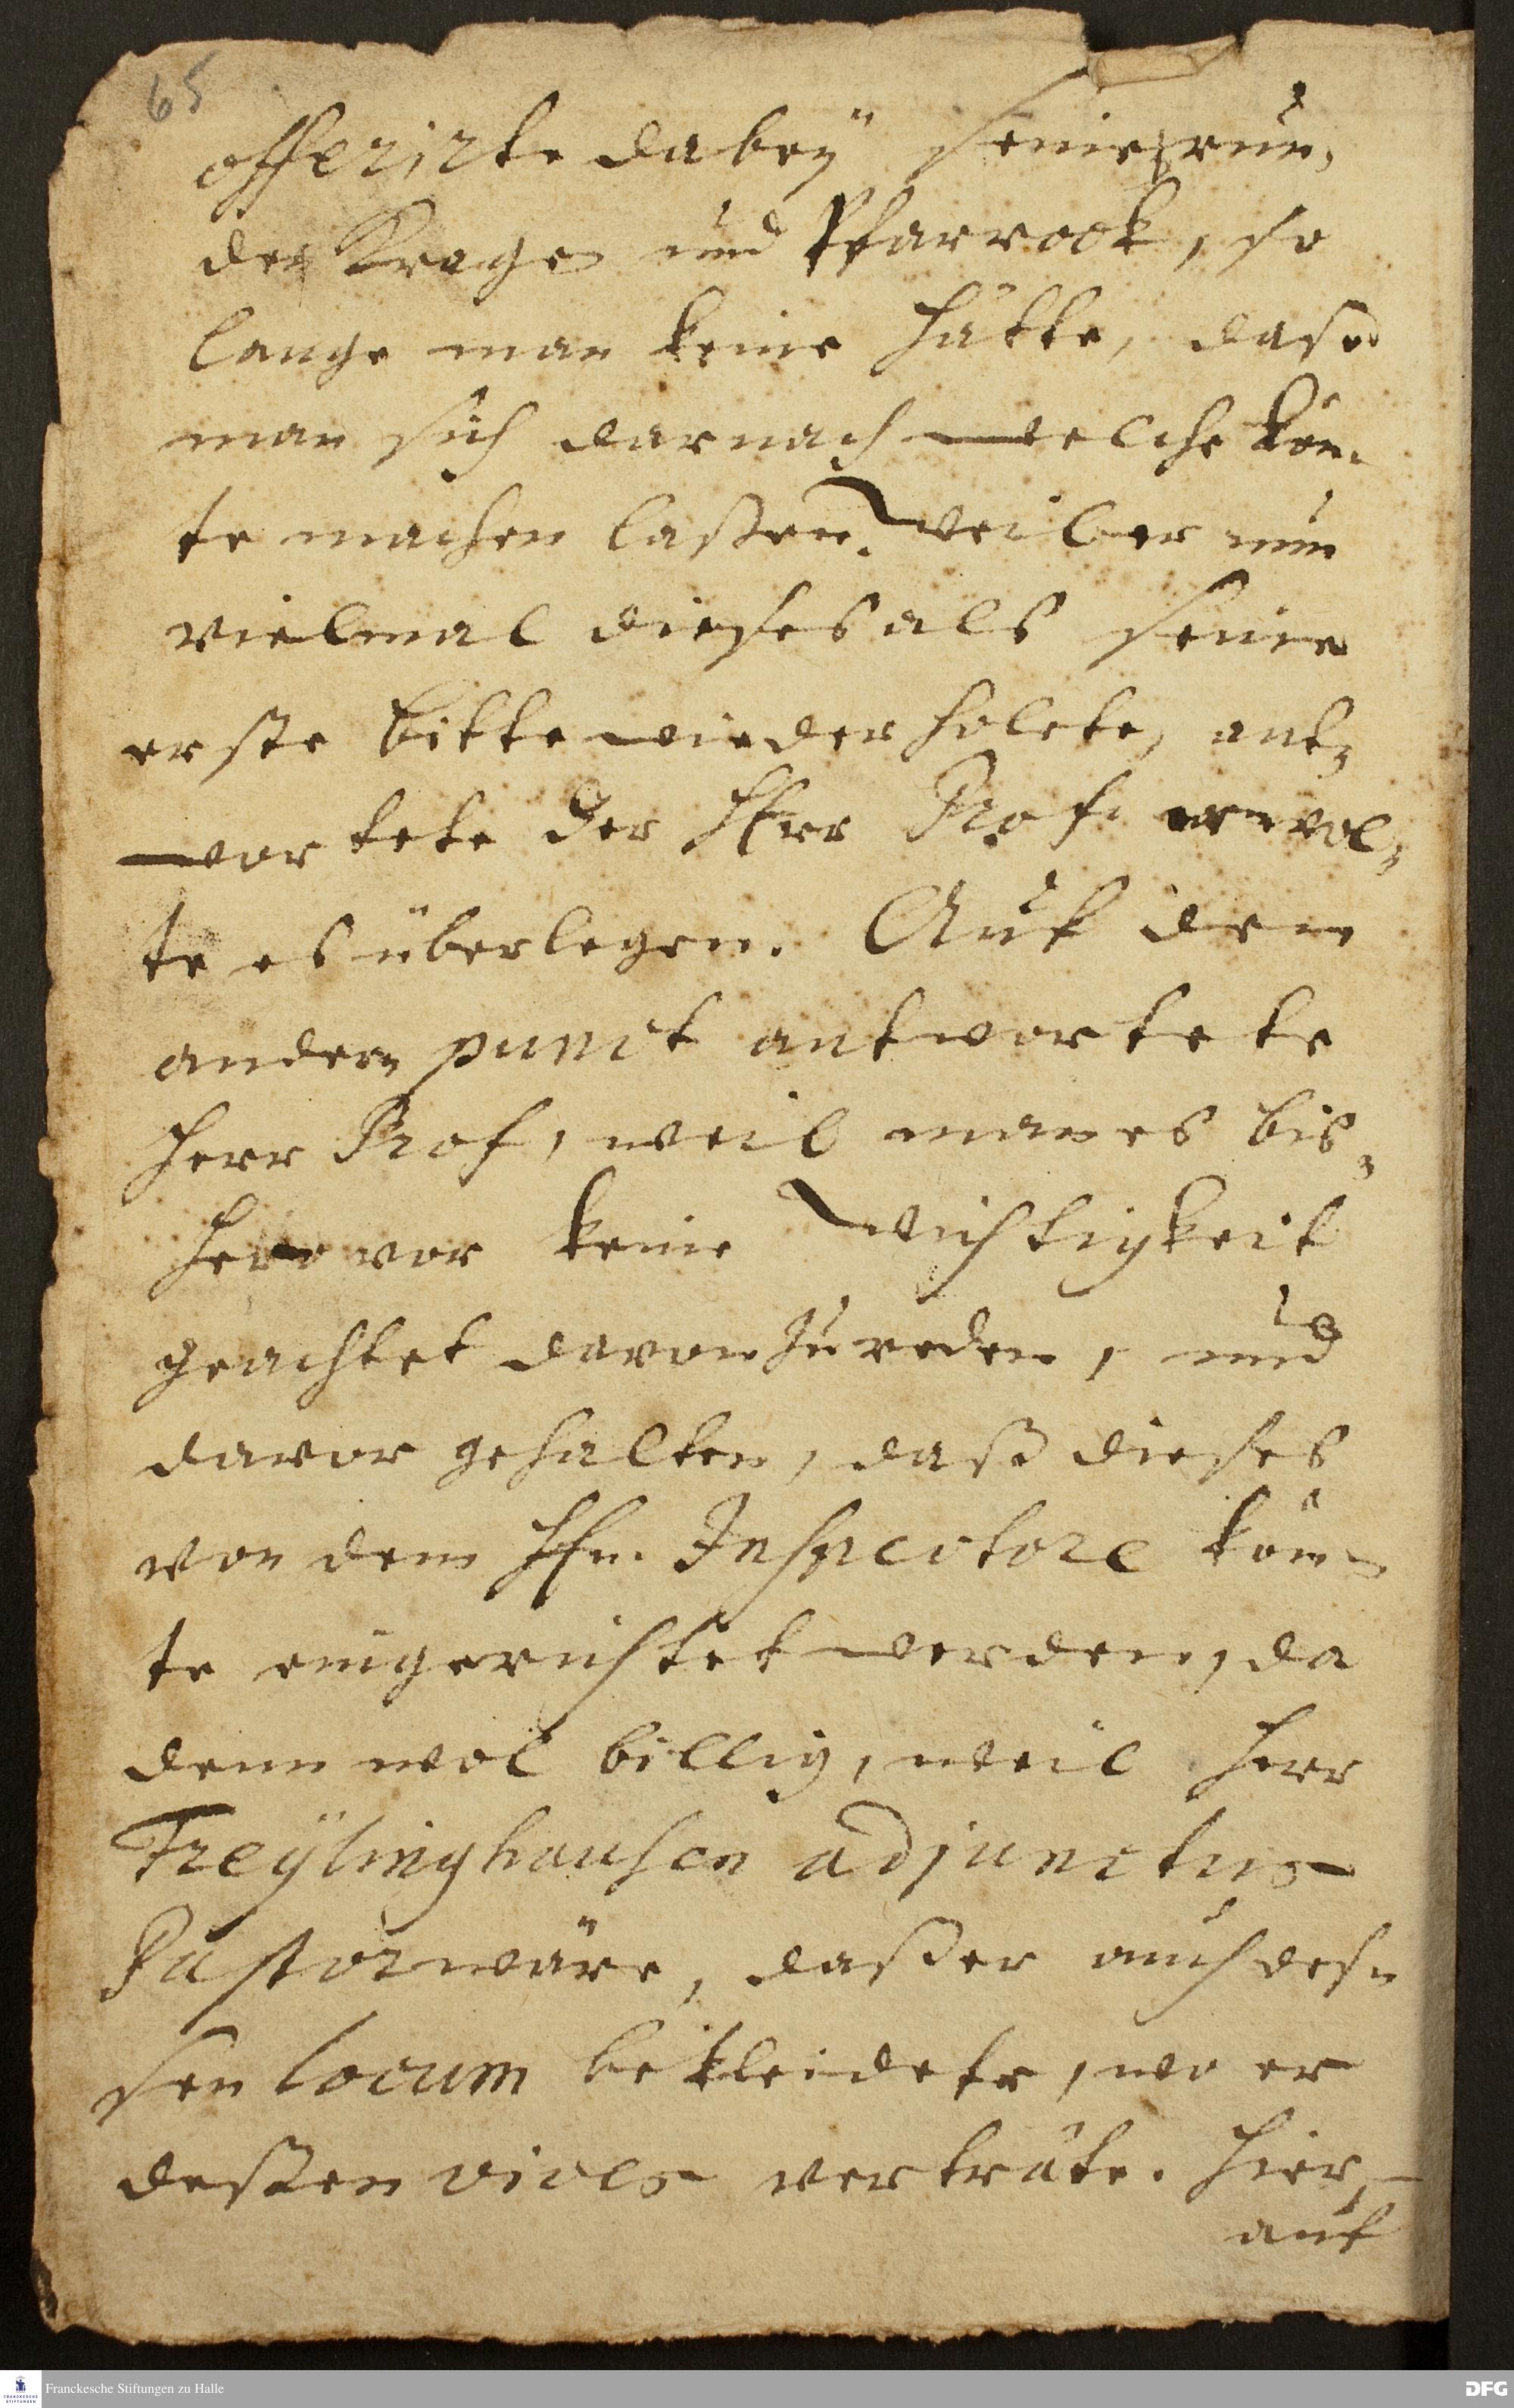 65
offerirte dabeÿ seine run,
den Kragen und Pfarrock, so
lange man keine hätte, daß
man sich darnach welche kön-
te machen laßen. Weil er nun
vielmal dieses als seine
erste bitte wiederholete, ant,
wortete der Herr Prof. er wol,
te es überlegen. Auf den
andern punct antwortete
Herr Prof, weil man es bis,
hero vor keine Wichtigkeit
geachtet davon zu reden, und
davor gehalten, daß dieses
von dem Hn. Inspectore kön-
te eingerichtet werden, da
denn wol billig, weil Herr
Freÿlinghausen adjunctus
Pastor wäre, daß er auch des,
sen locum bekleidete, wo er
deßen vices verträte. Hier,
auf
Franckesche Stiftungen zu Halle
DFG